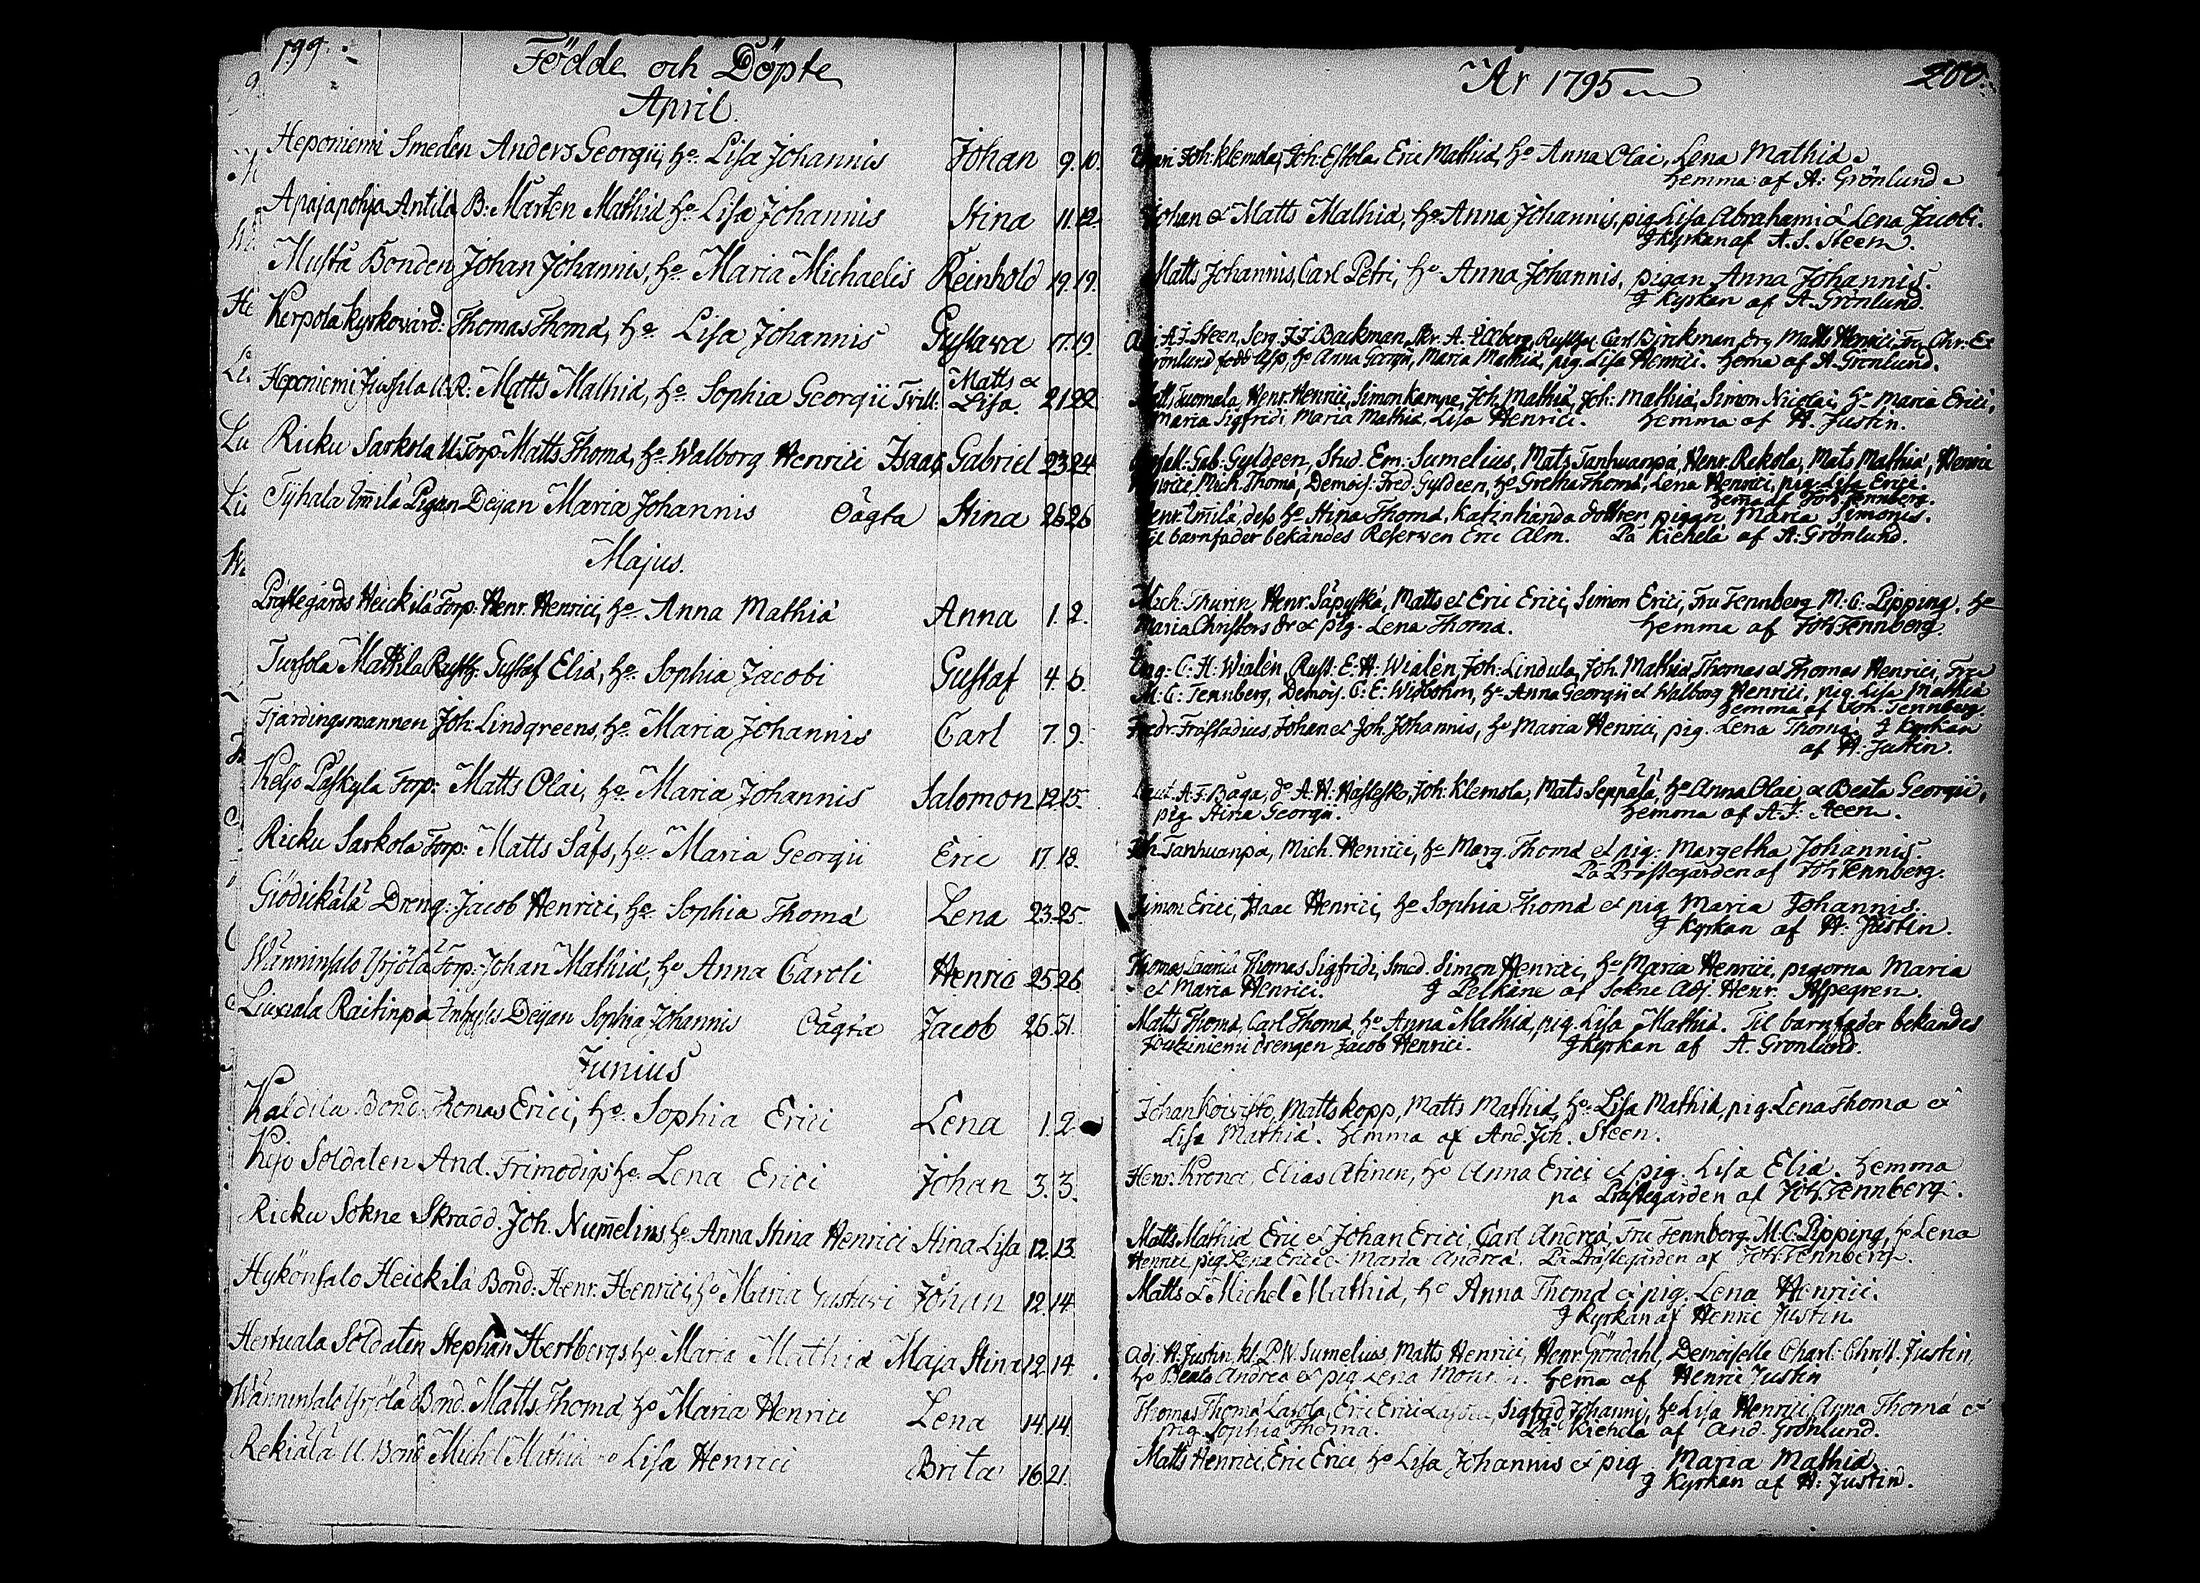 199.
Födde och Döpte
April.
Heponiemi Smeden Anders Georgii, hu. Lisa Johannis Johan 9. 10.
Apajapohja Antila B: Mårten Mathiæ hu. Lisa Johannis Stina 11. 12.
Musta Bonden Johan Johannis, hu. Maria Michaelis Reinhold 19. 19.
Kerpola kyrkovärd: Thomas Thomæ, hu. Lisa Johannis Gustava 17. 19.
Heponiemi U.R: Matts Mathiæ, hu. Sophia Georgii Trill: Matts et Lisa. 21. 22.
Ricku Sarkola U.Torp. Matts Thomæ, hu. Walborg Henrici Isaac Gabriel 23. 24
Tyhala Pigan Deyan Maria Johannis Oägta Stina 26 26
Majus.
Prästegårds Heickilä Torp: Henr. Henrici, hu. Anna Mathiæ Anna 1. 2.
Tursola Mattila Rusth. Gustaf Eliæ, hu. Sophia Jacobi Gustaf 4. 6.
Fjardingsmannen Joh. Lindgreens, hu. Maria Johannis Carl 7. 9.
Keljo Torp: Matts Olai, hu. Maria Johannis Salomon 12. 15.
Ricku Sarkola Torp: Matts Säfs, hu. Maria Georgii Eric 17. 18.
Giödickälä Dreng: Jacob Henrici, hu. Sophia Thomæ Lena 23. 25.
Wänninsalo Yrjölä Torp. Johan Mathiæ, hu Anna Caroli Henric 25 26
Luxiala Raitinpä Inhyses Deyan Sophia Johannis Oägta Jacob 26. 31.
Junius
Kaldila Bond. Thomas Erici, hu. Sophia Erici Lena 1. 2
Soldaten And. Frimodigs hu. Lena Erici Johan 3. 3.
Ricku Sokne Skrädd. Joh. Num̄elins hu. Anna Stina Henrici Stina Lisa 12. 13.
Hykönsalo Heickilä Bond: Henr. Henrici, hu Maria Gustavi Johan 12. 14.
Hertuala Soldaten Stephan Hertbergs hu. Maria Mathiæ Maja Stina 12. 14.
Wänninsalo Yrjölä Bond. Matts Thomæ, hu Maria Henrici Lena 14. 14.
Rekiälä U. Bond Michel Mathiæ hu Lisa Henrici Brita 16. 21.
År 1795
200.
Joh: Klemola, Joh: Eric Mathiæ, hu Anna Olai, Lena Mathiæ
hemma af A: Grönlund
Johan et Matts Mathiæ, hu. Anna Johannis, pig. Lisa Abrahami et Lena Jacobi.
J kyrkan af A. J. Steen.
Matts Johannis, Carl Petri, hu Anna Johannis, pigan Anna Johannis.
J kyrkan af A. Grönlund.
A. J. Steen, Serg. J. J. Backman, Rusth. Carl Björkman, Matts Henrici, Fru Chr. El.
Grönlund född Asp, hu Anna Georgii, Maria Mathiæ, pig. Lisa Henrici. hema af A. Grönlund.
Matts Tuomela, Henr. Henrici, Simon Kampe, Joh. Mathiæ, Joh: Mathiæ, Simon Nicolai, hu Maria Erici,
Maria Sigfridi, Maria Mathiæ, Lisa Henrici. hemma af H. Justin.
Gab. Gyldeen, Stud. Em: Sumelius, Mats Tanhuanpä, Henr. Rekola, Mats Mathiæ, Henric
Mich. Thomæ, Demois. Fred. Gyldeen, hu Gretha Thomæ, Lena Henrici, pig. Lisa Erici.
hema af Joh. Tennberg.
Henr dess hu Stina Thomæ, dottren pigan Maria Simonis.
Til barnfader bekändes Reserven Eric Alm. På Kiehela af A: Grönlund.
Mich. Thurin, Henr. Säpyskä, Matts et Eric Erici, Simon Erici, Fru Tennberg M: C: Pipping, hu
Maria Christers dr et pig. Lena Thomæ. hemma af Joh. Tennberg.
C. H. Wialén, Rust. E. H. Wialén, Joh: Lindula, Joh. Mathiæ, Thomas et Thomas Henrici, Fru
M. C. Tennberg, Demois. C. E. hu. Anna Georgii et Walborg Henrici, pig. Lisa Mathiæ
hemma af Joh. Tennberg.
Fredr. Johan et Joh. Johannis, hu Maria Henrici, pig. Lena Thomæ. J kyrkan
af H. Justin.
A. F. Båga, do A. H. Joh: Klemola, Mats Seppälä, hu Anna Olai et Beata Georgii,
pig. Stina Georgii. hemma af A. J. Steen.
Joh. Tanhuanpä, Mich. Henrici, hu Marg. Thomæ et pig. Margetha Johannis.
På Prästegården af Joh. Tennberg.
Simon Erici, Isaac Henrici, hu Sophia Thomæ et pig Maria Johannis.
J kyrkan af H: Justin.
Thomas Thomas Sigfridi, Smed. Simon Henrici, hu Maria Henrici, pigorna Maria
et Maria Henrici. J Pelkäne af Sokne Adj. Henr. Aspegren.
Matts Thomæ, Carl Thomæ, hu Anna Mathiæ, pig. Lisa Mathiæ. Til barnfader bekändes
drengen Jacob Henrici. J kyrkan af A. Grönlund.
Johan Koivisto, Matts Kopp, Matts Mathiæ, hu. Lisa Mathiæ, pig. Lena Thomæ et
Lisa Mathiæ. hemma af And. Joh. Steen.
Henr. Krona, Elias hu Anna Erici et pig. Lisa Eliæ. hemma
på Prästegården af Joh. Tennberg.
Matts Mathiæ Eric et Johan Erici, Carl Andreæ, Fru Tennberg M. C. Pipping, hu Lena
Henrici, pig. Lena Erici et Maria Andreæ. På Prästegården af Joh. Tennberg.
Matts et Michel Mathiæ, hu Anna Thomæ et pig. Lena Henrici.
J kyrkan af Henric Justin.
Adj. H. Justin, kl. P. W. Sumelius, Matts Henrici, Henr. Gröndahl, Demoiselle Charl. Christ. Justin,
hu Beata Andreæ et pig Lena hema af Henric Justin
Thomas Thomæ Eric Erici Sigfrid Johannis, hu Lisa Henrici, Anna Thomæ et
pig. Sophia Thomæ. På Kiehela af And. Grönlund.
Matts Henrici, Eric Erici, hu Lisa Johannis et pig. Maria Mathiæ.
J kyrkan af H: Justin.